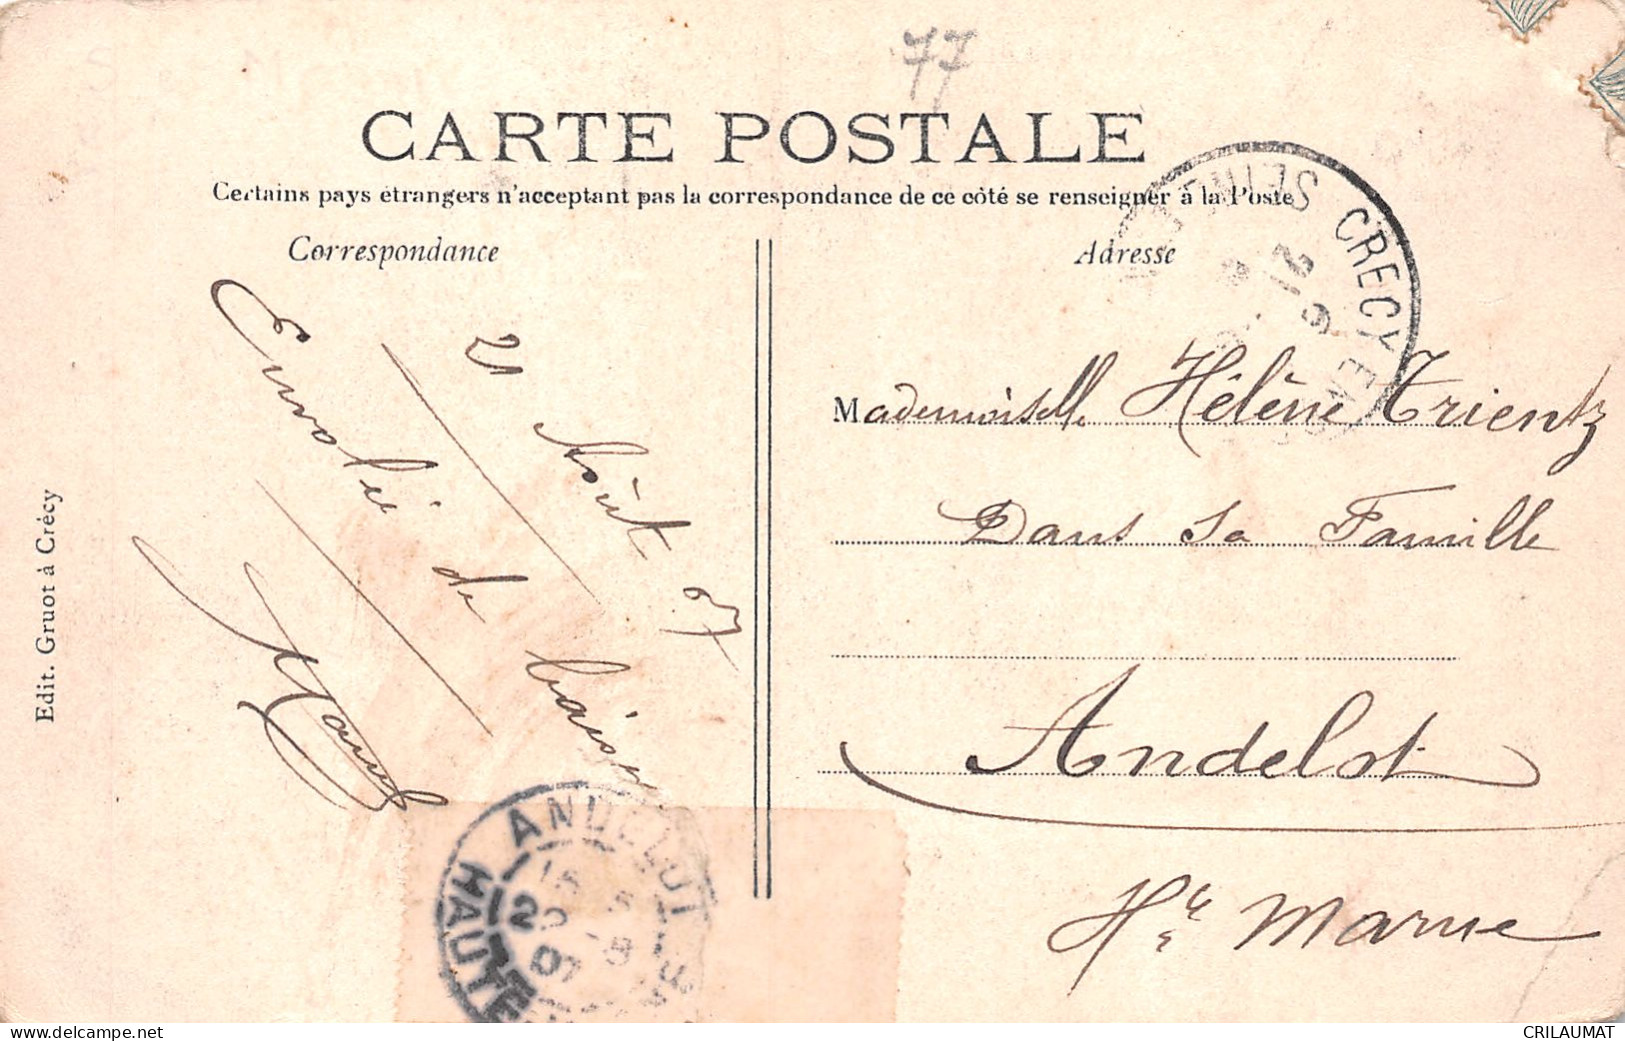 77
CARTE POSTALE
Certains pays étrangers n'acceptant pas la correspondance de ce côté se renseigner à la Poste
Correspondance
Adresse
21 Août 07
de
Edit. Gruot à Crécy
CRECY EN
SEINE
21
Mademoiselle Hélène Trientz
Dans Sa Famille
Andelot
Hte Marne
ANDELOT
HAUTE
07
www.delcampe.net
CRILAUMAT